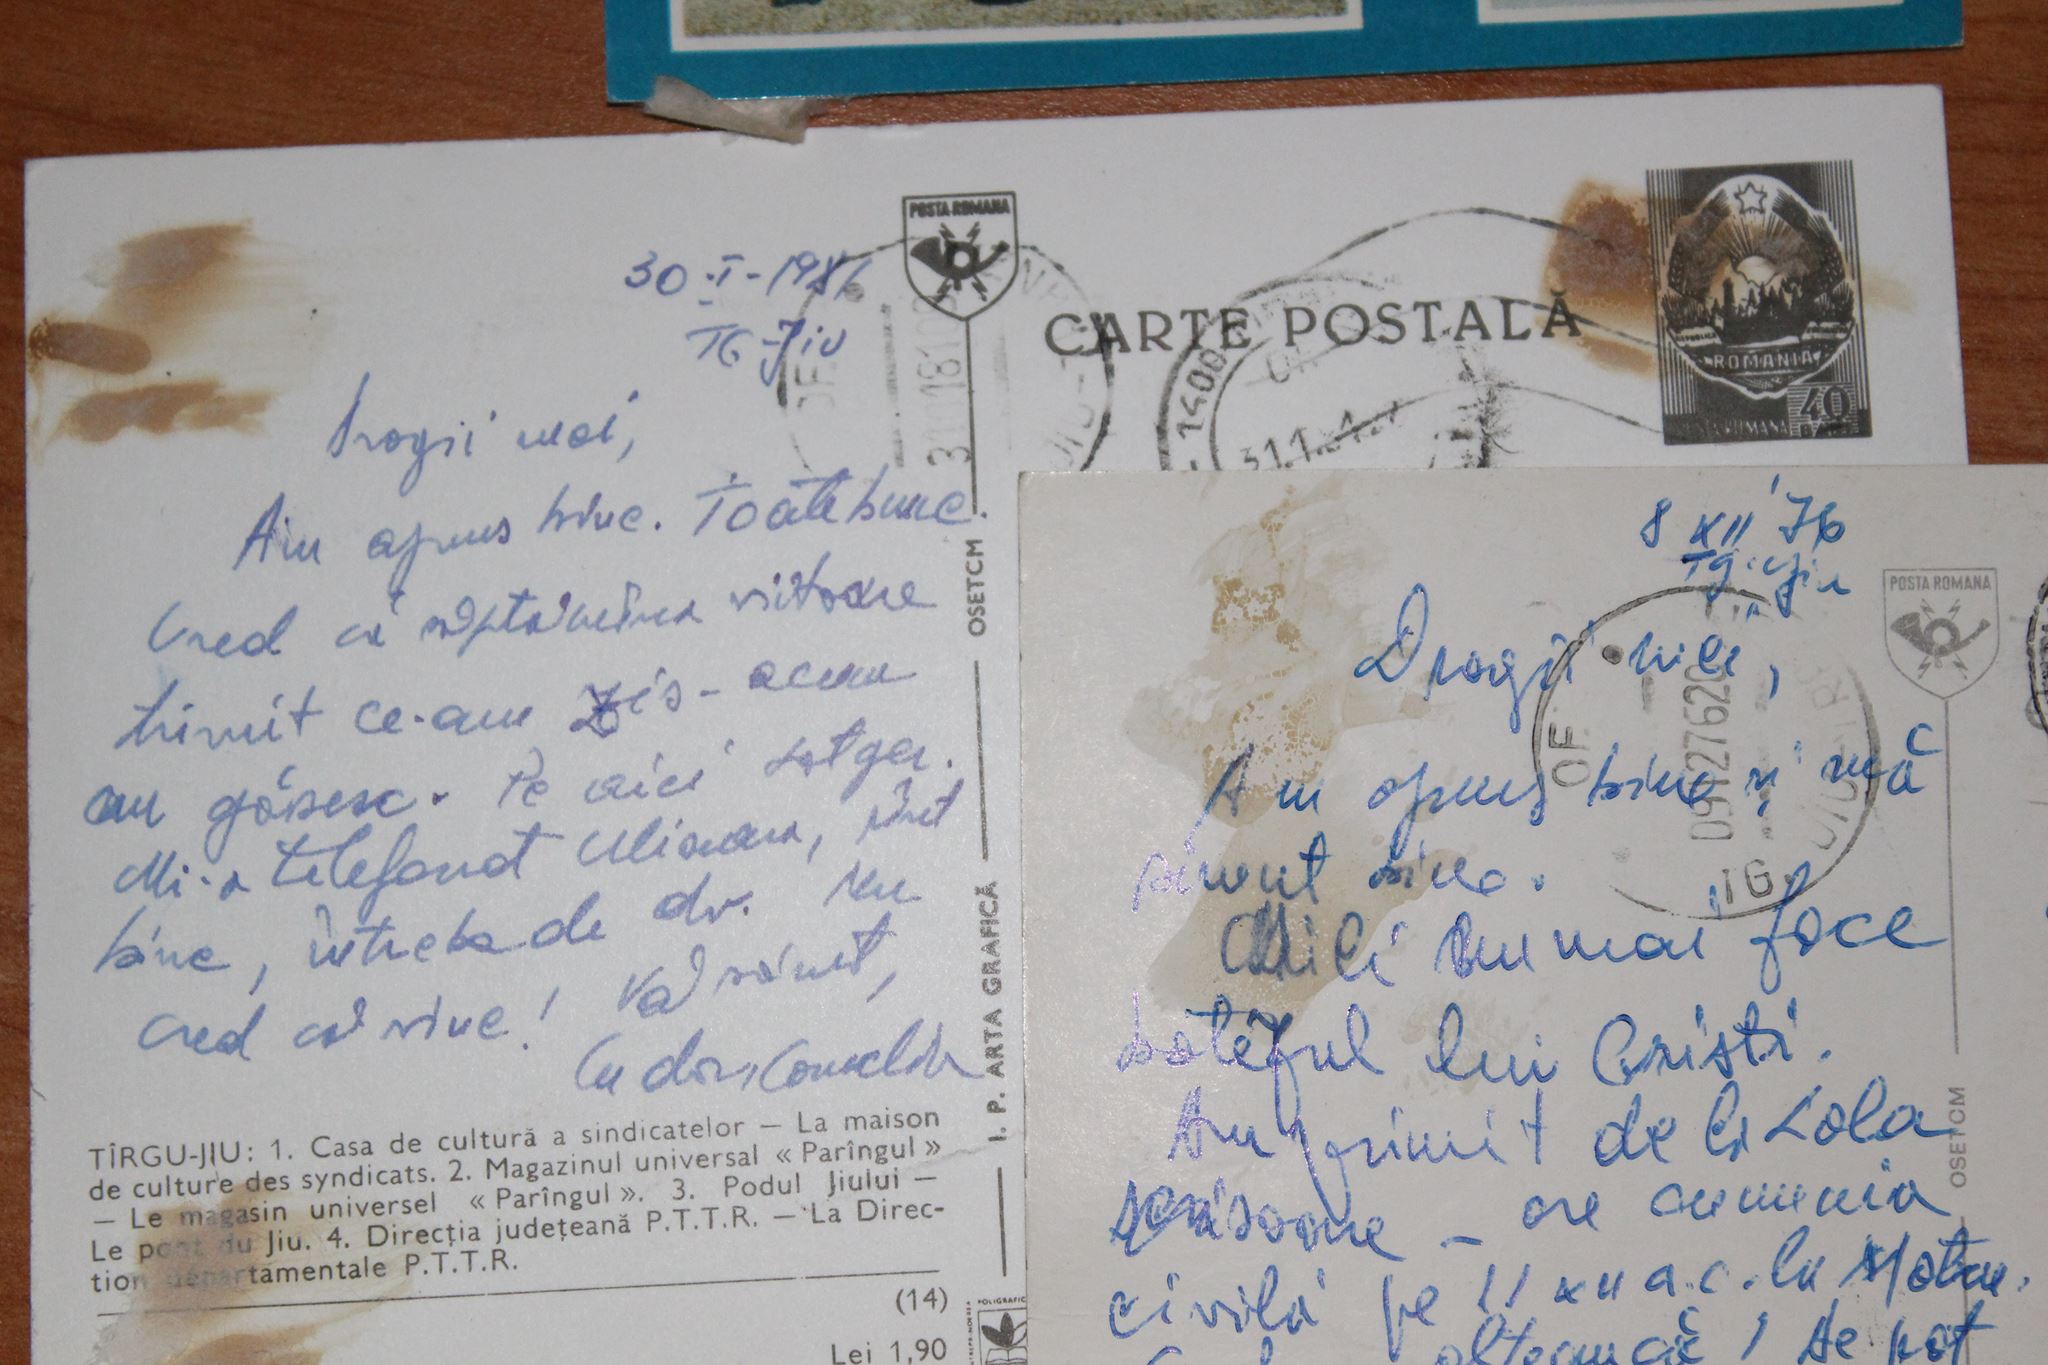 POSTA ROMANA
CARTE POSTALĂ
ROMANIA
40
30-I-1981
TG-Jiu
Dragii mei,
Am ajuns bine. Toate bune.
Cred că săptămîna viitoare
trimit ce-am zis - acum
nu găsesc. Pe aici tot ger.
Mi-a telefonat Miоara, sînt
bine, întreba de dv. Nu
cred că vine! Vă sărut,
TÎRGU-JIU: 1. Casa de cultură a sindicatelor — La maison
de culture des syndicats. 2. Magazinul universal « Parîngul »
— Le magasin universel « Parîngul ». 3. Podul Jiului —
Le pont du Jiu. 4. Direcția județeană P.T.T.R. — La Direc-
tion départamentale P.T.T.R.
(14)
Lei 1,90
OSETCM
I. P. ARTA GRAFICĂ
POLIGRAFIC
8 XII '76
Tg. Jiu
POSTA ROMANA
Dragii mei,
Am ajuns bine și mă
simt bine.
Mili nu mai face
botezul lui Cristi.
Am primit de la Lola
scrisoare - are cununia
civilă pe 11 XII a.c. la
OF.
TG.
OSETCM